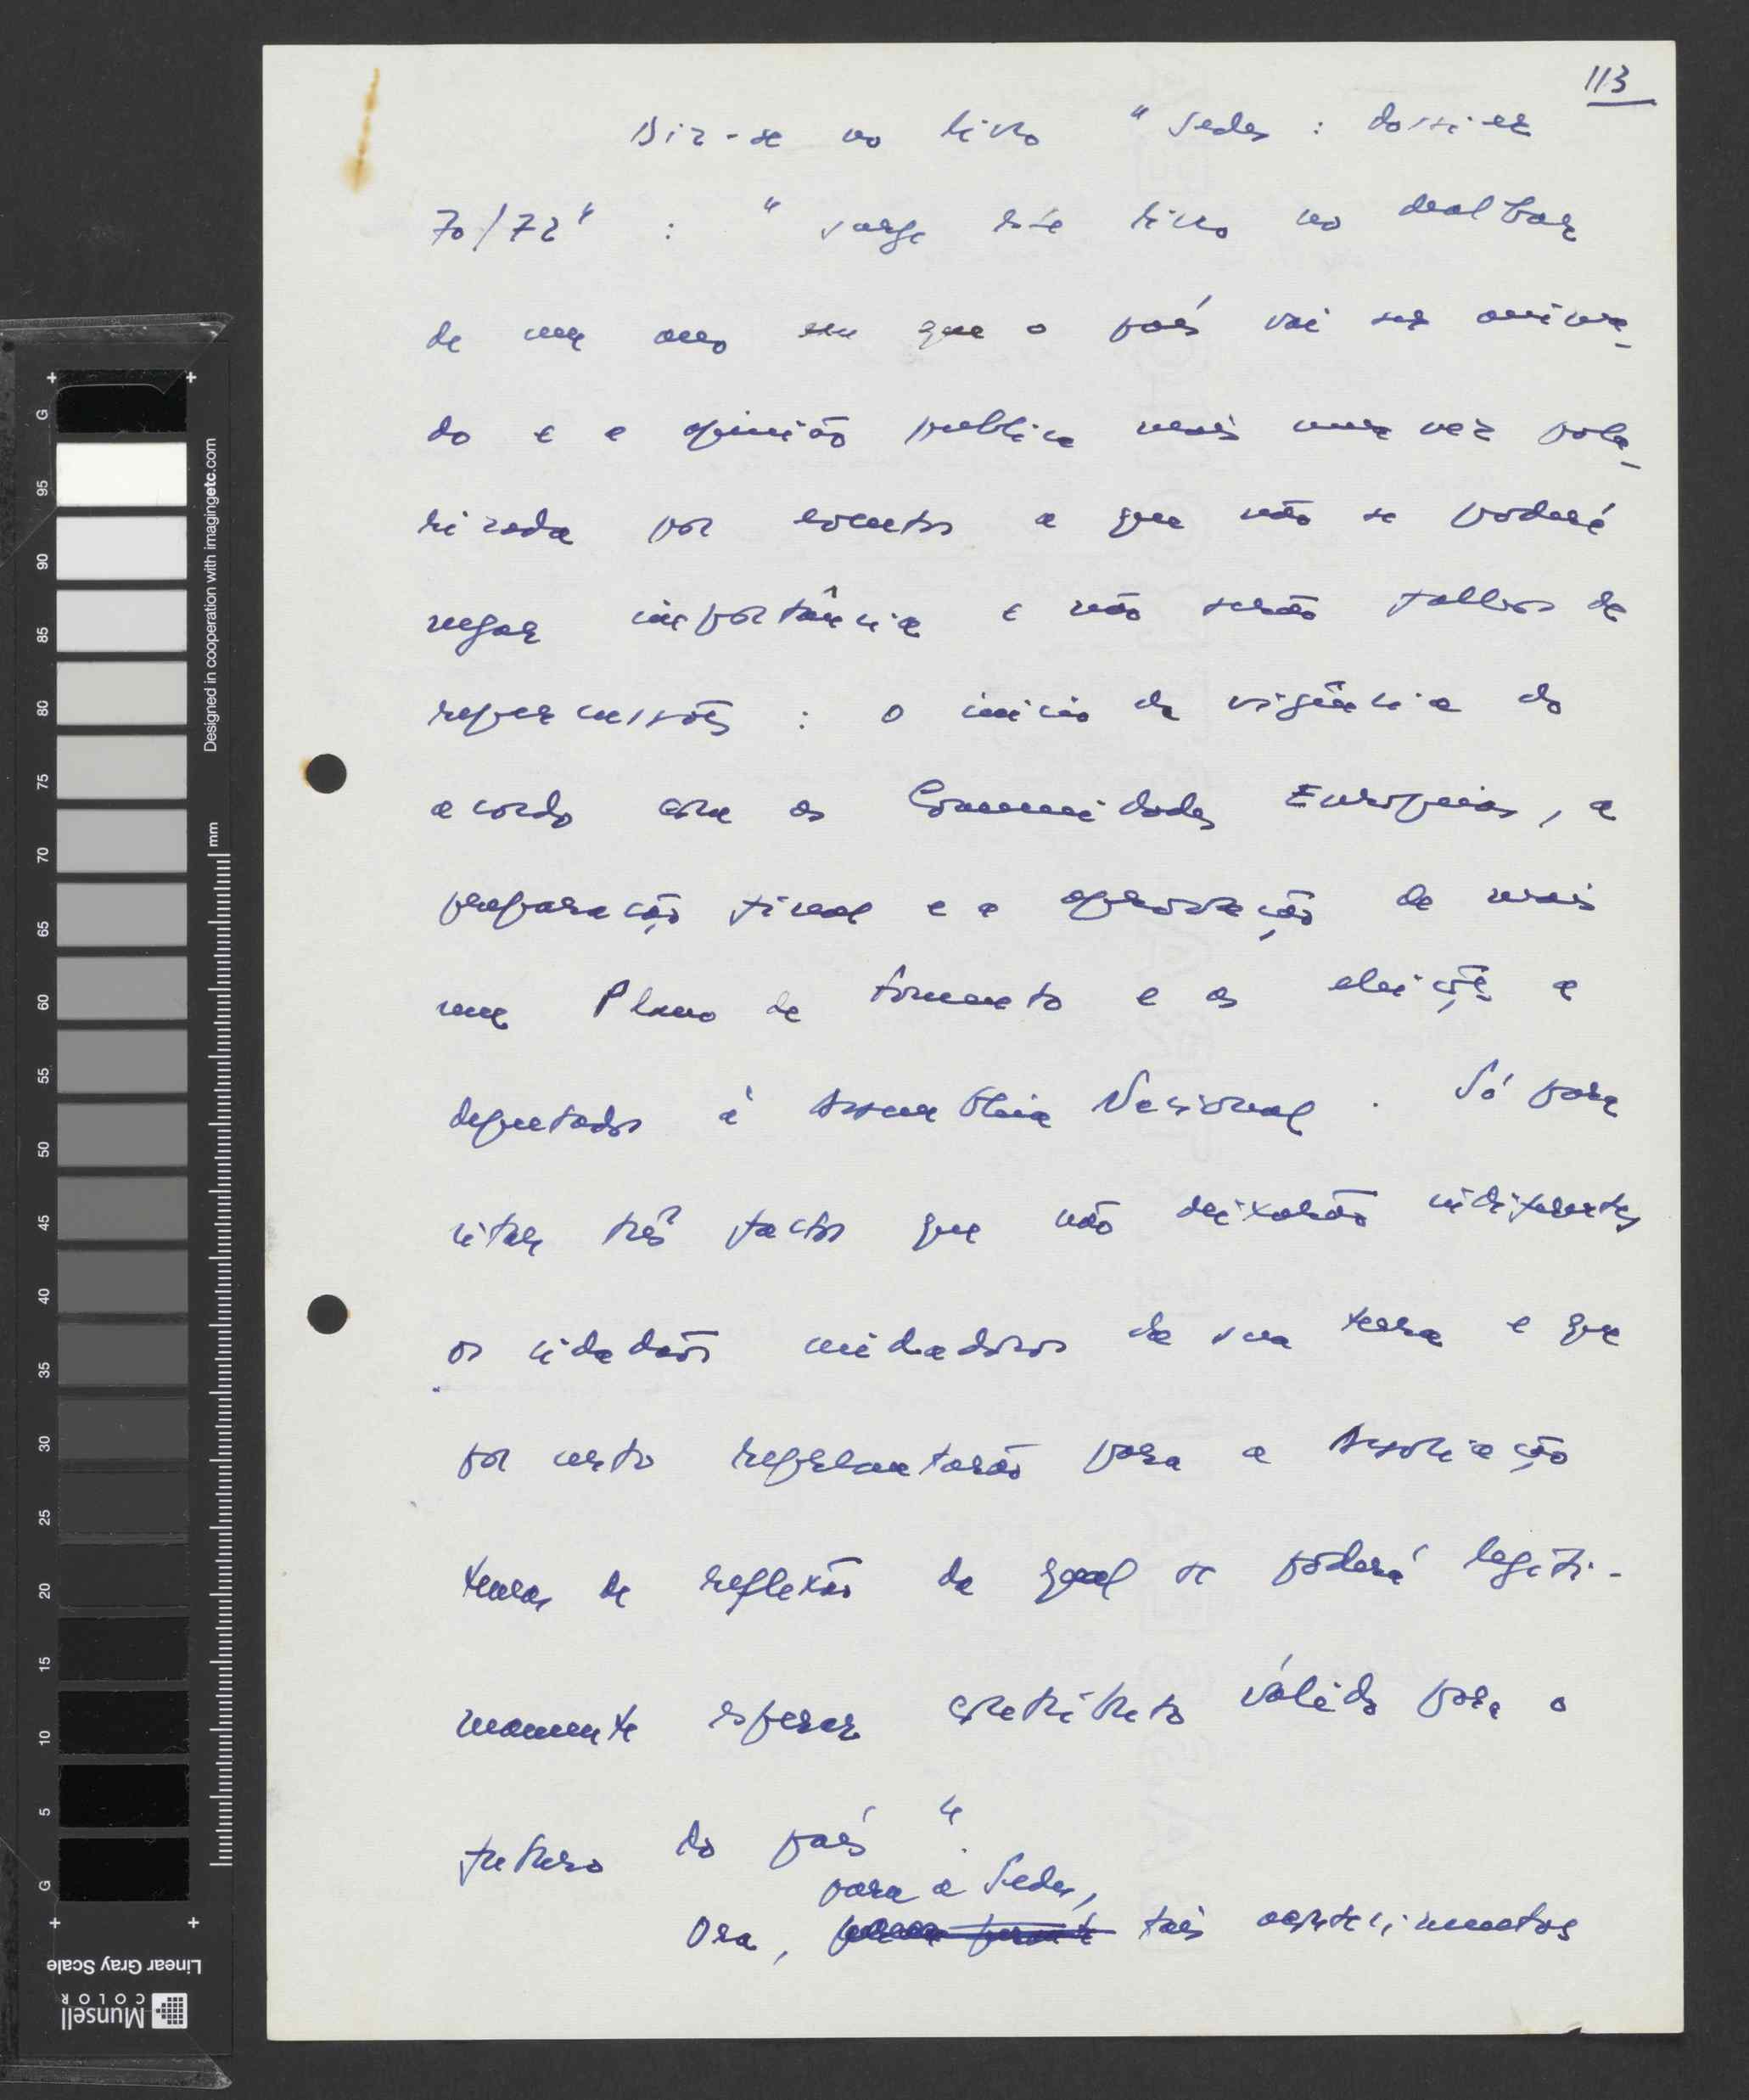 113
Diz-se no livro "Sedes: dossier
70/72": "surge este livro no dealbar
de um ano em que o país vai ser anima-
do e a opinião publica mais uma vez pola-
rizada por eventos a que não se poderá
negar importância e não serão falhos de
repercussões: o inicio da vigência do
acordo com as Comunidades Europeias, a
preparação final e a aprovação de mais
um Plano de Fomento e as eleições a
deputados à Assembleia Nacional. Só para
citar três factos que não deixarão indiferentes
os cidadãos cuidadosos da sua terra e que
por certo representarão para a Associação
temas de reflexão da qual se poderá legiti-
mamente esperar contributo válido para o
futuro do país".
para a Sedes,
Ora, tais acontecimentos
G
95
90
85
80
75
70
65
60
55
50
45
40
35
30
25
20
15
10
5
G
Designed in cooperation with imagingetc.com
mm
Linear Gray Scale
Munsell
COLOR